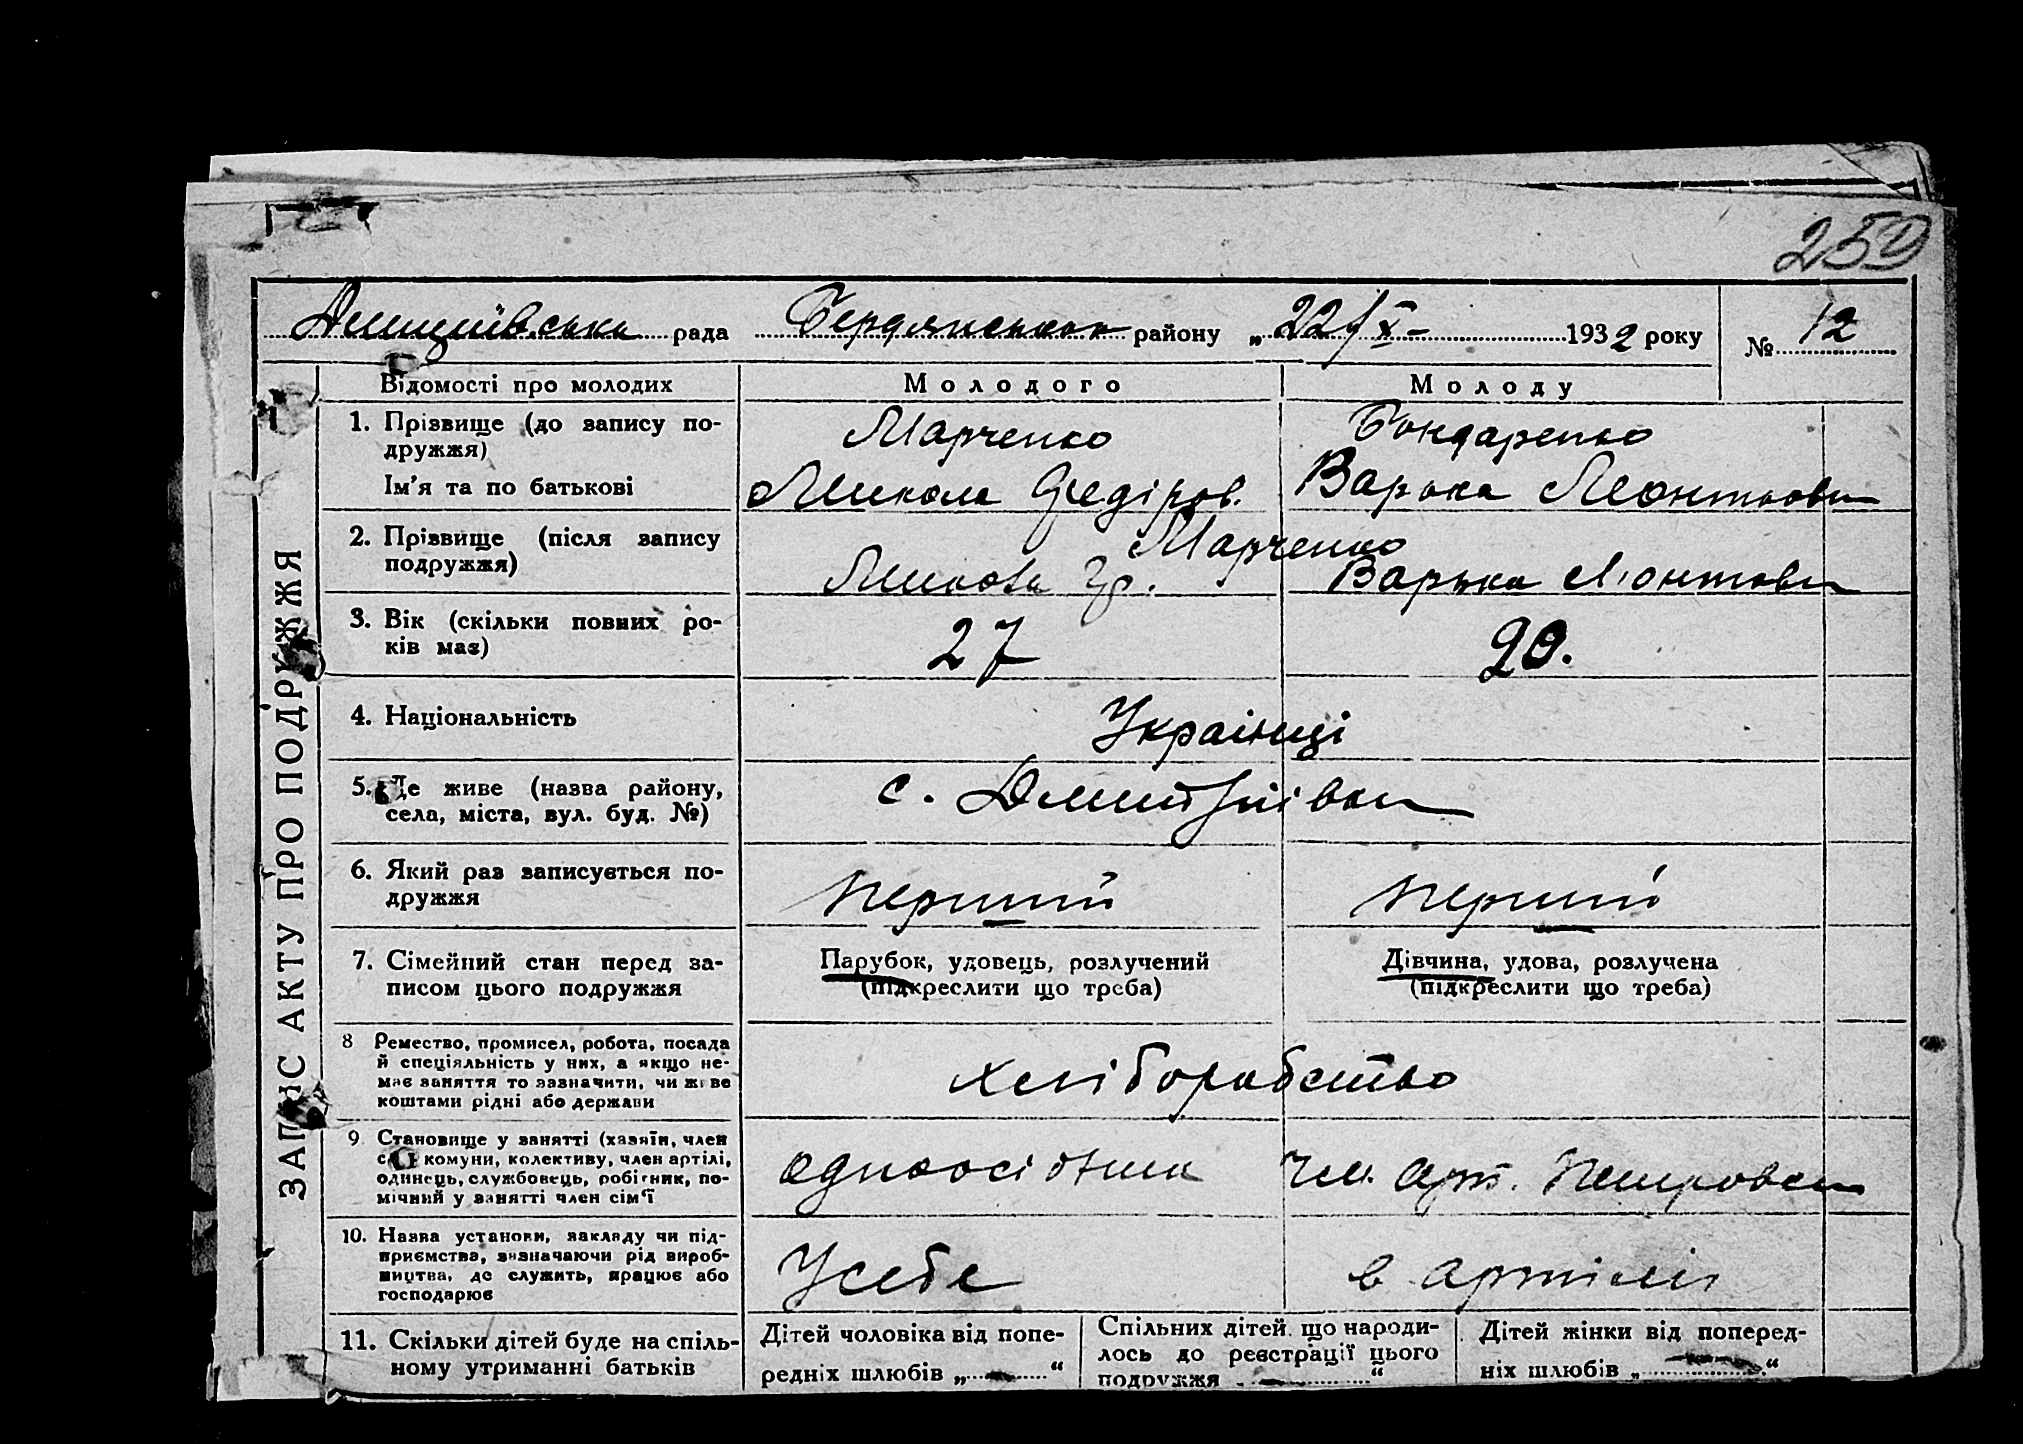 259
Дмитріївська рада Бердянського району „ 22/X- 1932 року № 12
ЗАПИС АКТУ ПРО ПОДРУЖЖЯ
Відомості про молодих
Молодого
Молоду
1. Прізвище (до запису по-
дружжя)
Марченко
Бондаренко
Ім'я та по батькові
Микола Федіров.
Варька Леонтьовн
2. Прізвище (після запису
подружжя)
Марченко
Микола Гр.
Варька Леонтовн
3. Вік (скільки повних ро-
ків має)
27
20.
4. Національність
Українці
5. Де живе (назва району,
села, міста, вул. буд. №)
с. Дмитріівка
6. Який раз записується по-
дружжя
перший
перший
7. Сімейний стан перед за-
писом цього подружжя
Парубок, удовець, розлучений
(підкреслити що треба)
Дівчина, удова, розлучена
(підкреслити що треба)
8 Ремество, промисел, робота, посада
й спеціяльність у них, а якщо не-
має заняття то зазначити, чи живе
коштами рідні або держави
хліборобство
9. Становище у занятті (хазяїн, член
комуни, колективу, член артілі,
одинець, службовець, робітник, по-
мічний у занятті член сім'ї
одноосібник
чл. арт. Петровск
10. Назва установи, закладу чи під-
приємства, визначаючи рід вироб-
ництва, де служить, працює або
господарює
У себе
в артілі
11. Скільки дітей буде на спіль-
ному утриманні батьків
Дітей чоловіка від попе-
редніх шлюбів „ — “
Спільних дітей, що народи-
лось до реєстрації цього
подружжя — “
Дітей жінки від поперед-
ніх шлюбів „ — “